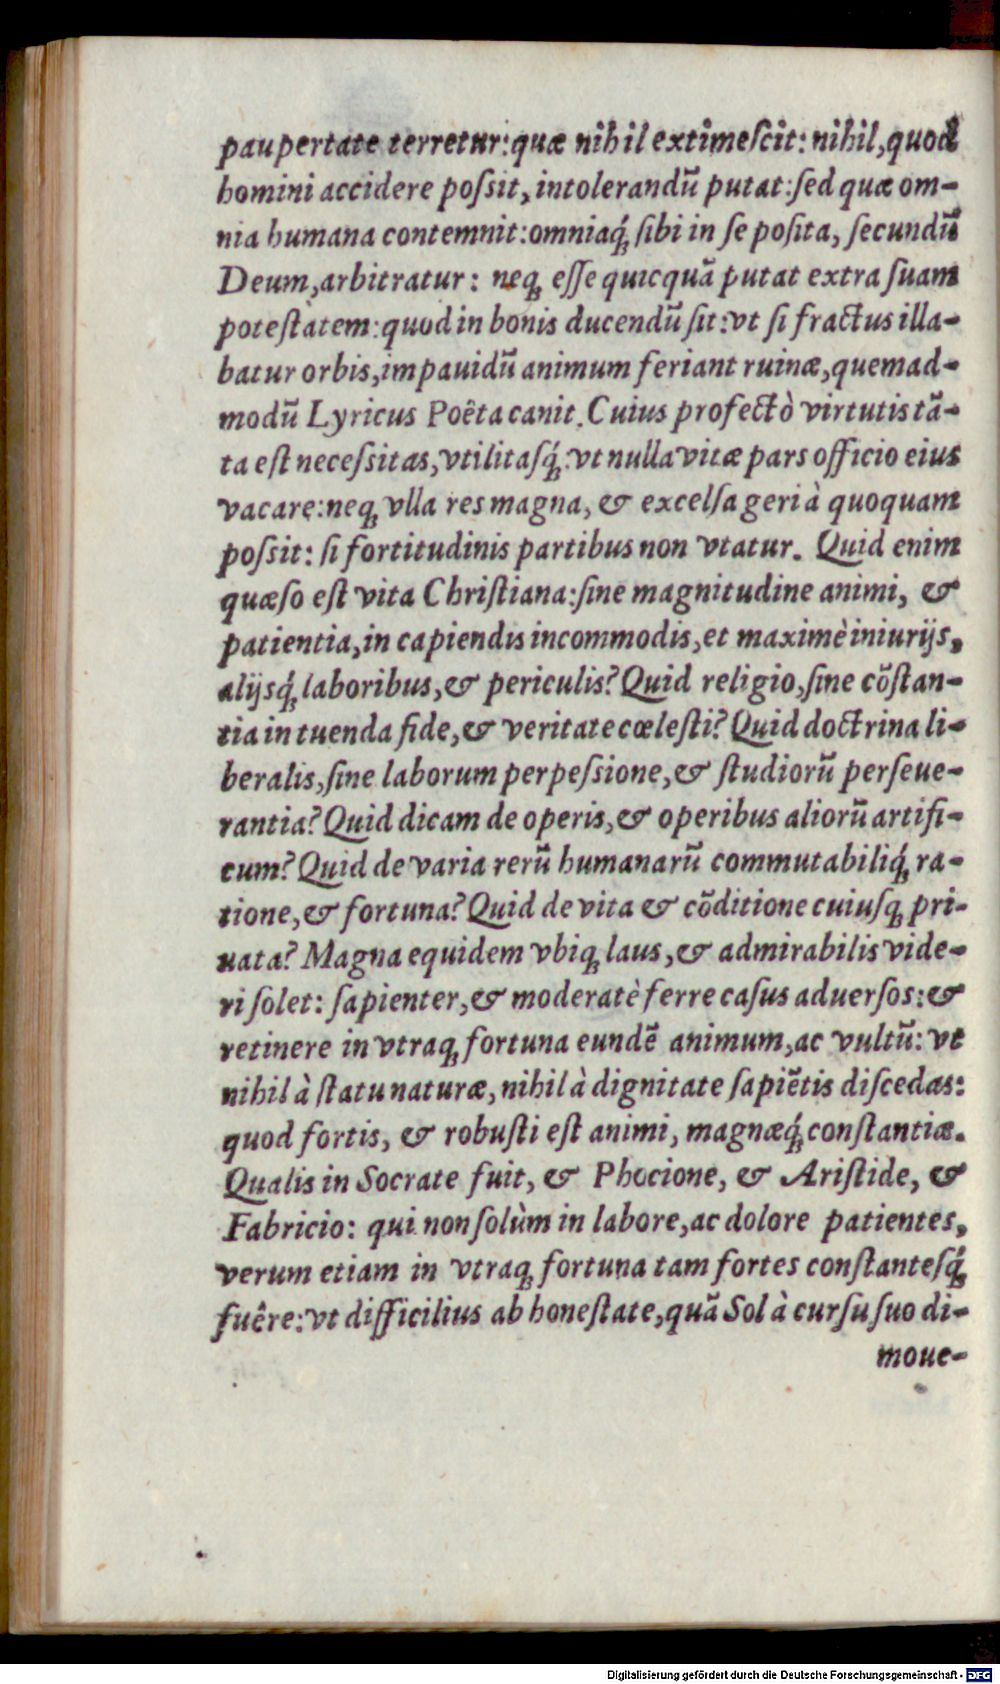 paupertate terretur: quæ nihil extimeſcit: nihil, quod
homini accidere poſsit, intolerandũ putat: ſed quæ om-
nia humana contemnit: omniaq́; ſibi in ſe poſita, ſecundũ
Deum, arbitratur: neq; eſſe quicquã putat extra ſuam
poteſtàtem: quod in bonis ducendũ ſit: vt ſi fractus illa-
batur orbis, impauidũ animum feriant ruinæ, quemad-
modũ Lyricus Poêta canit. Cuius profectò virtutis tã-
ta eſt neceſsitas, vtilitaſq́;: vt nulla vitæ pars officio eius
vacare: neq; vlla res magna, & excelſa geri à quoquam
poſsit: ſi fortitudinis partibus non vtatur. Quid enim
quæſo eſt vita Chriſtiana: ſine magnitudine animi, &
patientia, in capiendis incommodis, et maximè iniurijs,
alijsq́; laboribus, & periculis? Quid religio, ſine cõſtan-
tia in tuenda fide, & veritate cœleſti? Quid doctrina li-
beralis, ſine laborum perpeſsione, & ſtudiorũ perſeue-
rantia? Quid dicam de operis, & operibus aliorũ artifi-
cum? Quid de varia rerũ humanarũ commutabiliq́; ra-
tione, & fortuna? Quid de vita & cõditione cuiuſq; pri-
uata? Magna equidem vbiq; laus, & admirabilis vide-
ri ſolet: ſapienter, & moderatè ferre caſus aduerſos: &
retinere in vtraq; fortuna eundẽ animum, ac vultũ: vt
nihil à ſtatu naturæ, nihil à dignitate ſapiẽtis diſcedas:
quod fortis, & robuſti eſt animi, magnæq́; conſtantiæ.
Qualis in Socrate fuit, & Phocione, & Ariſtide, &
Fabricio: qui non ſolùm in labore, ac dolore patientes,
verum etiam in vtraq; fortuna tam fortes conſtanteſq́;
fuêre: vt difficilius ab honeſtate, quã Sol à curſu ſuo di-
moue-
Digitalisierung gefördert durch die Deutsche Forschungsgemeinschaft - DFG